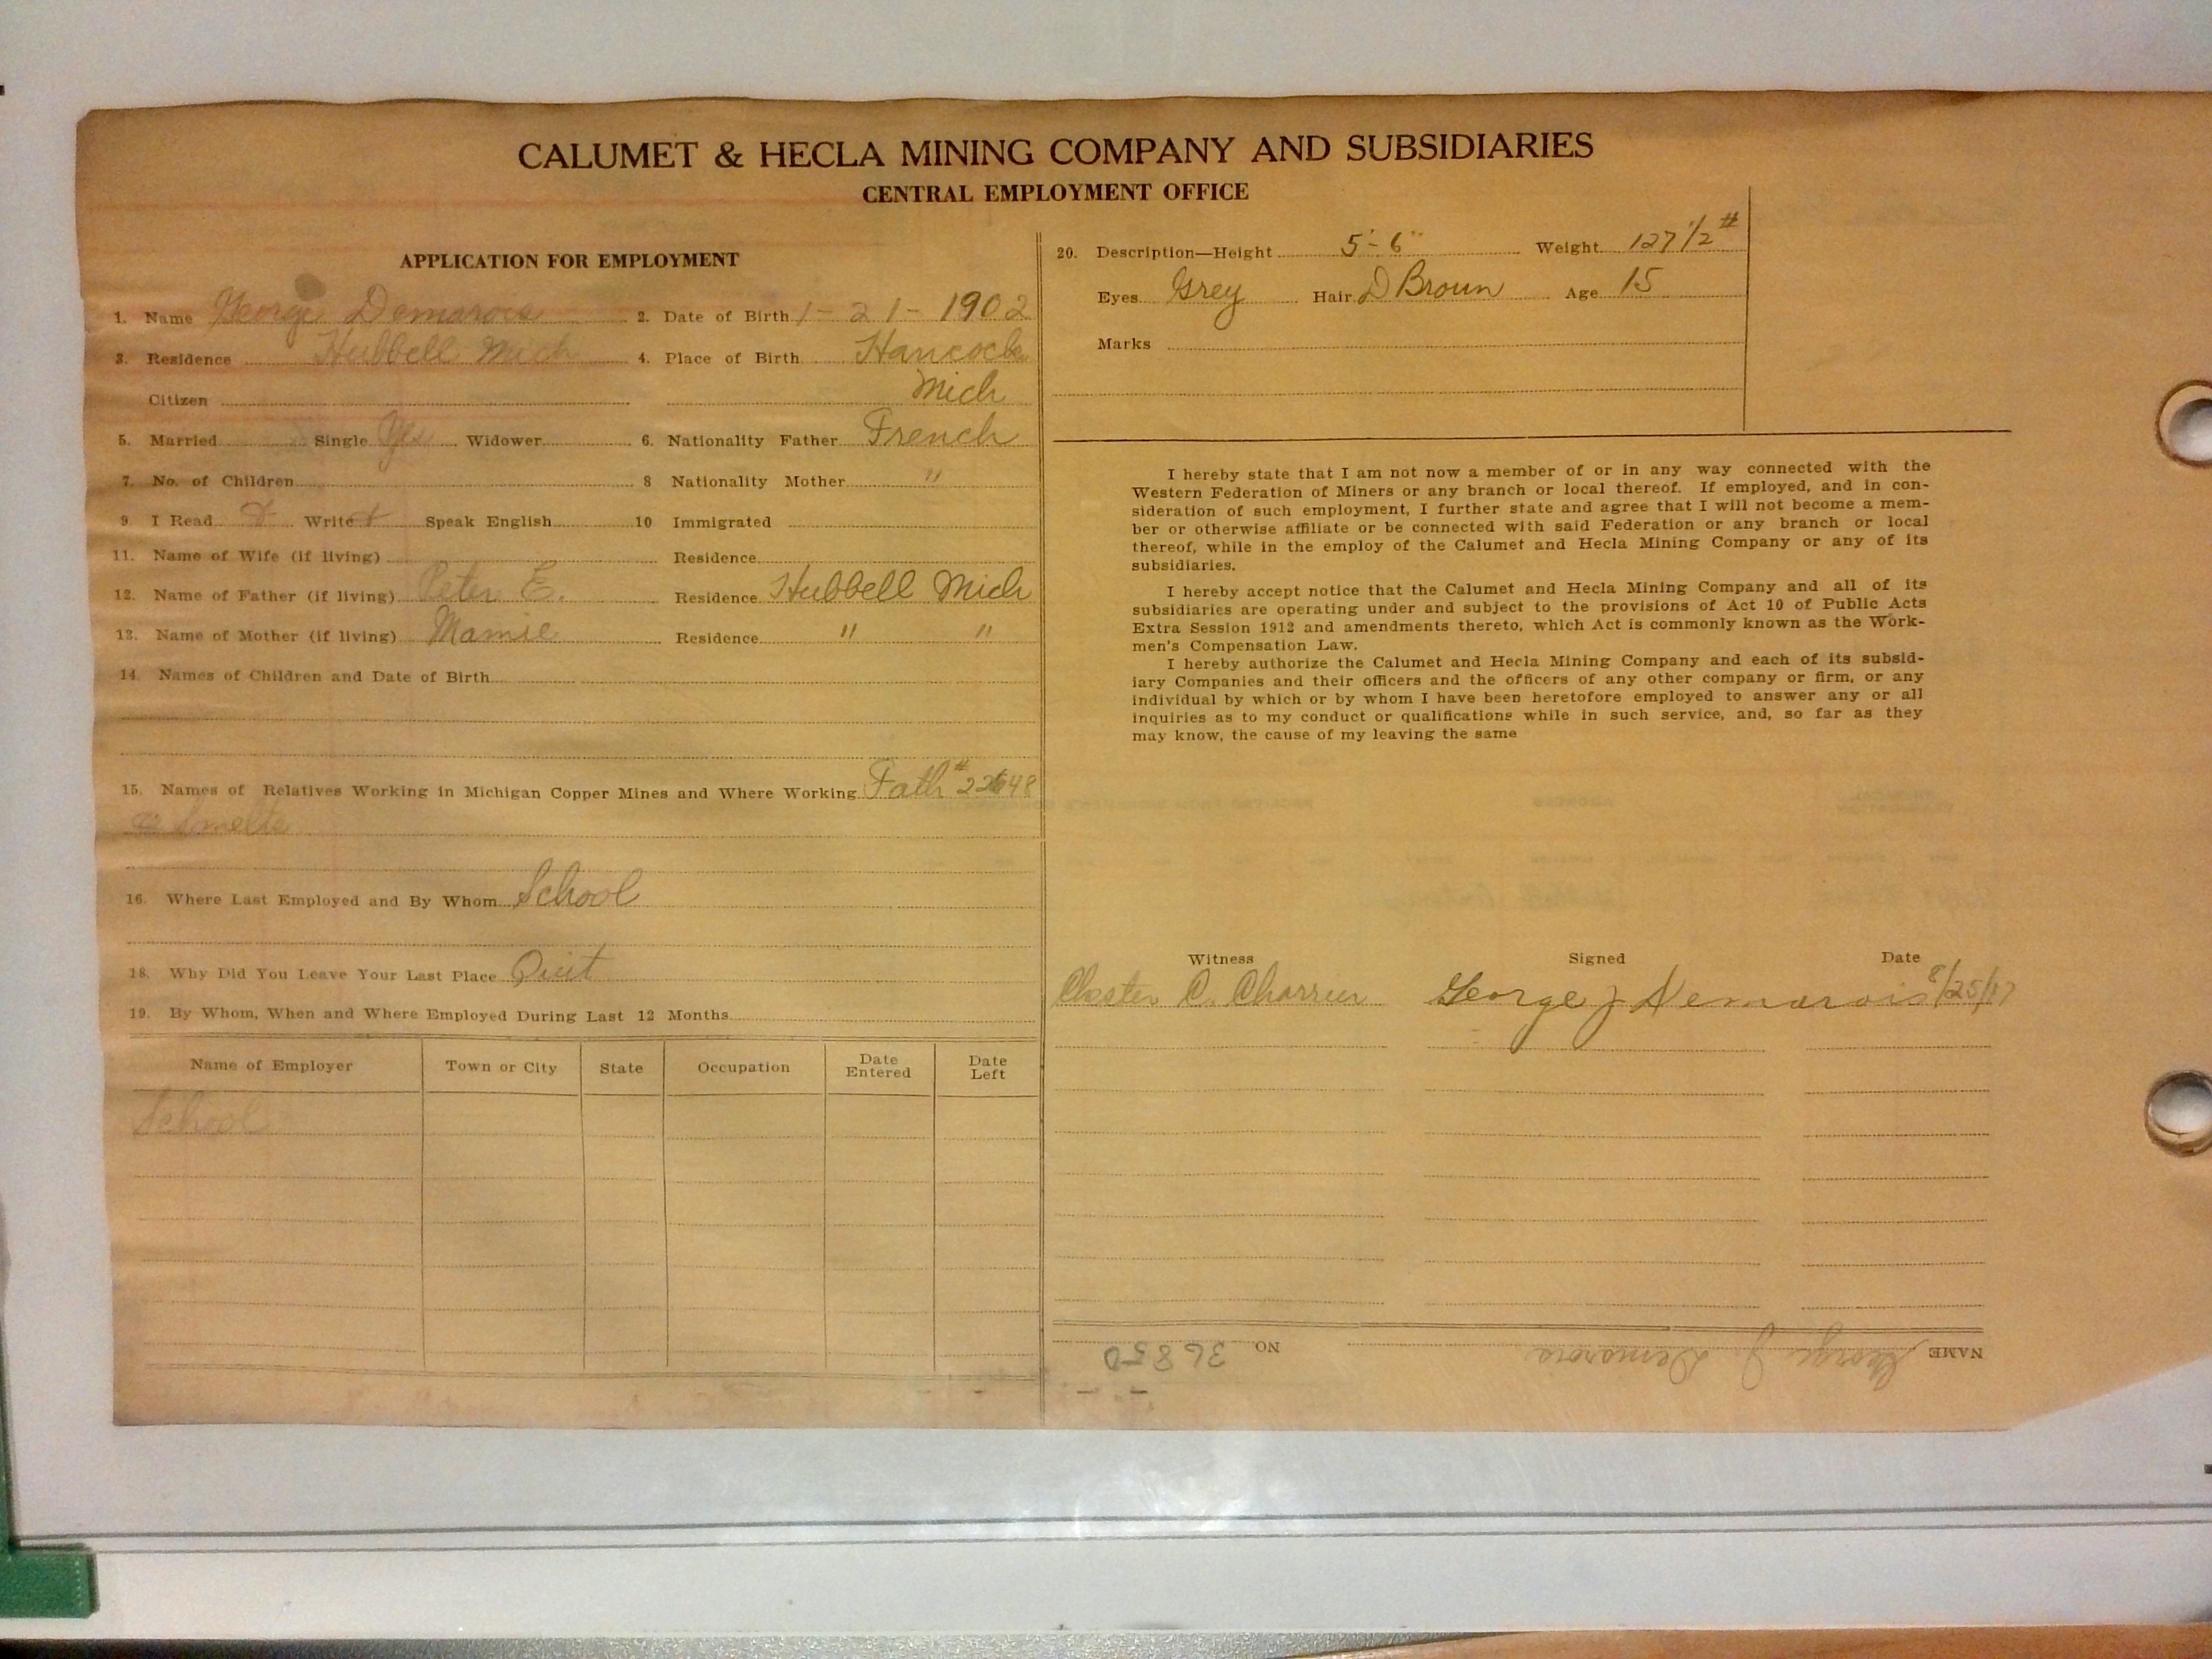 CALUMET & HECLA MINING COMPANY AND SUBSIDIARIES
CENTRAL EMPLOYMENT OFFICE
APPLICATION FOR EMPLOYMENT
1. Name George Demarois 2. Date of Birth 1-21-1902
3. Residence Hubbell Mich 4. Place of Birth Hancock
Citizen Mich
5. Married Single Yes Widower 6. Nationality Father French
7. No. of Children 8 Nationality Mother "
9 I Read Write Speak English 10 Immigrated
11. Name of Wife (if living) Residence
12. Name of Father (if living) Peter E. Residence Hubbell Mich
13. Name of Mother (if living) Mamie Residence " "
14. Names of Children and Date of Birth
15. Names of Relatives Working in Michigan Copper Mines and Where Working Fath #
Smelte
16. Where Last Employed and By Whom School
18. Why Did You Leave Your Last Place Quit
19. By Whom, When and Where Employed During Last 12 Months
Name of Employer Town or City State Occupation Date Entered Date Left
School
20. Description—Height 5'-6" Weight 127 1/2 #
Eyes Grey Hair D Brown Age 15
Marks
I hereby state that I am not now a member of or in any way connected with the
Western Federation of Miners or any branch or local thereof. If employed, and in con-
sideration of such employment, I further state and agree that I will not become a mem-
ber or otherwise affiliate or be connected with said Federation or any branch or local
thereof, while in the employ of the Calumet and Hecla Mining Company or any of its
subsidiaries.
I hereby accept notice that the Calumet and Hecla Mining Company and all of its
subsidiaries are operating under and subject to the provisions of Act 10 of Public Acts
Extra Session 1912 and amendments thereto, which Act is commonly known as the Work-
men's Compensation Law.
I hereby authorize the Calumet and Hecla Mining Company and each of its subsid-
iary Companies and their officers and the officers of any other company or firm, or any
individual by which or by whom I have been heretofore employed to answer any or all
inquiries as to my conduct or qualifications while in such service, and, so far as they
may know, the cause of my leaving the same
Witness Signed Date
C. George J Demarois 8/25/17
NAME George J. Demarois NO 36850